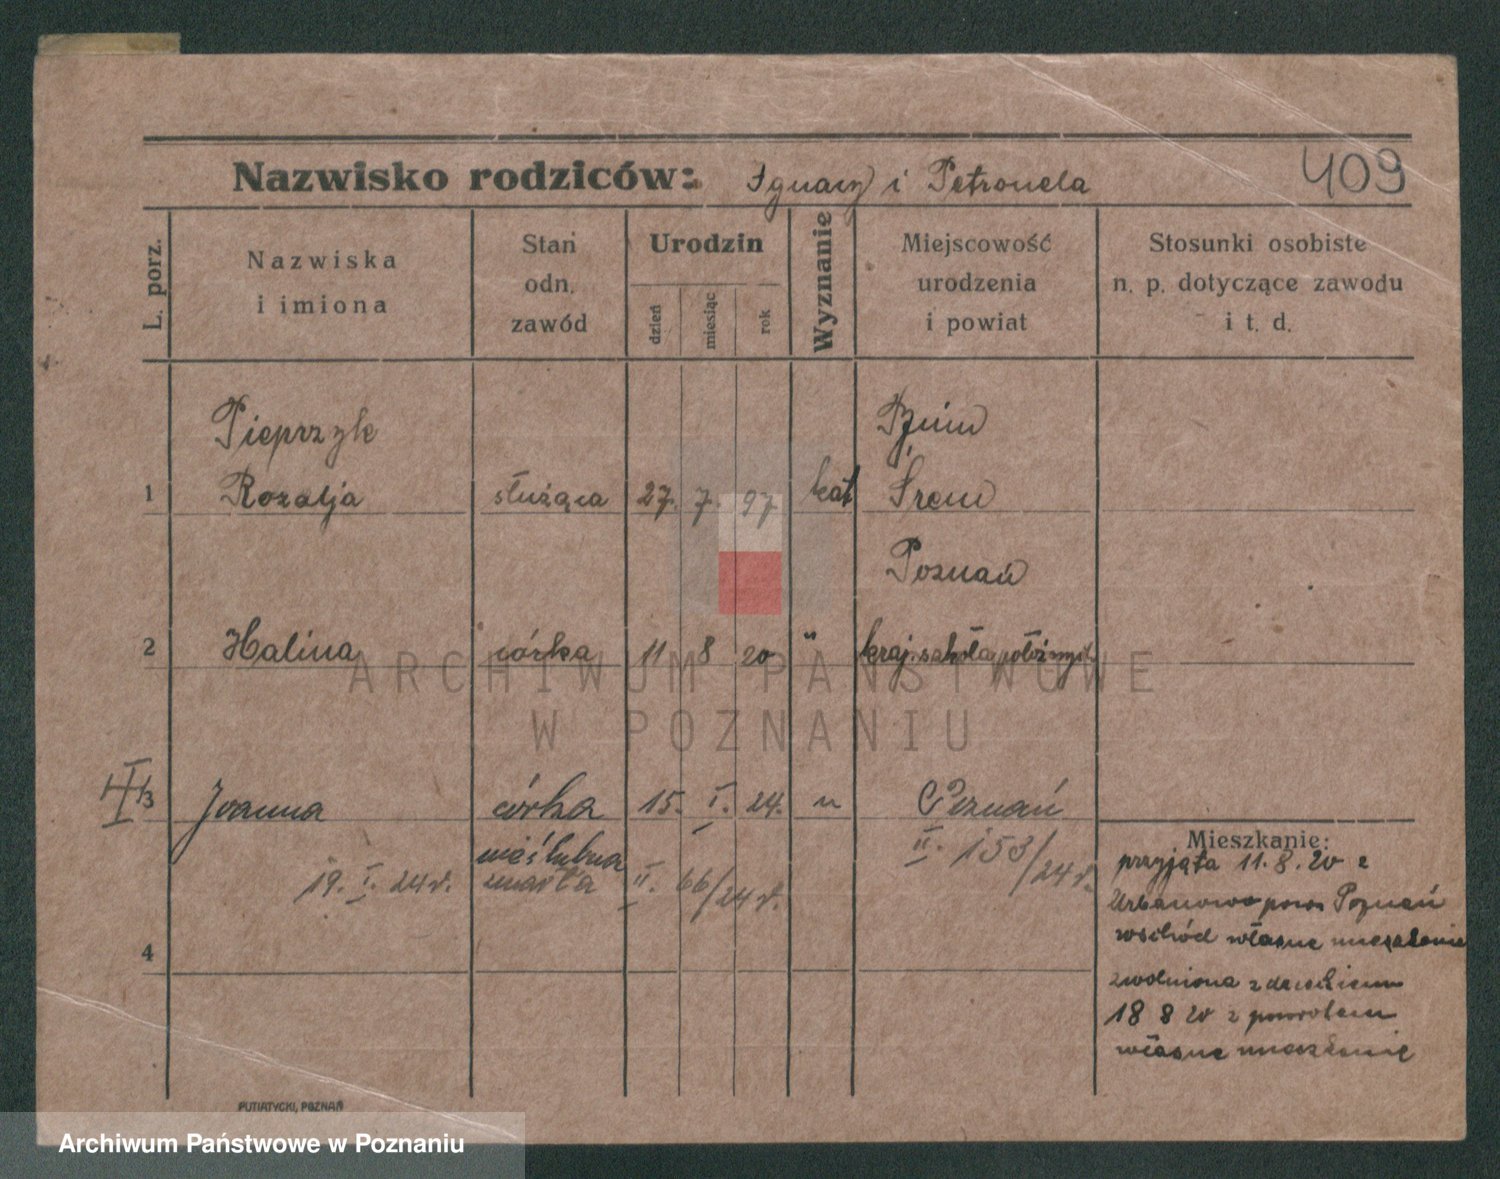 Nazwisko rodziców: Ignacy i Petronela
409
L. porz.
Nazwiska
i imiona
Stan
odn.
zawód
Urodzin
dzień
miesiąc
rok
Wyznanie
Miejscowość
urodzenia
i powiat
Stosunki osobiste
n. p. dotyczące zawodu
i t. d.
Pieprzyk
1 Rozalja służąca 27. 7. 97 kat Śrem
Poznań
2 Halina córka 11 8 20 " kraj. szkoła położnych
3 Joanna córka 15. I. 24. " Poznań
nieślubna II. 153/24 r.
19. I. 24 r. zmarła II. 66/24 r.
4
Mieszkanie:
przyjęta 11. 8. 20 z
Urbanowo pow Poznań
wschód własne mieszkanie
zwolniona z dzieckiem
18 8 20 z powrotem
własne mieszkanie
PUTIATYCKI, POZNAŃ
ARCHIWUM PAŃSTWOWE
W POZNANIU
Archiwum Państwowe w Poznaniu